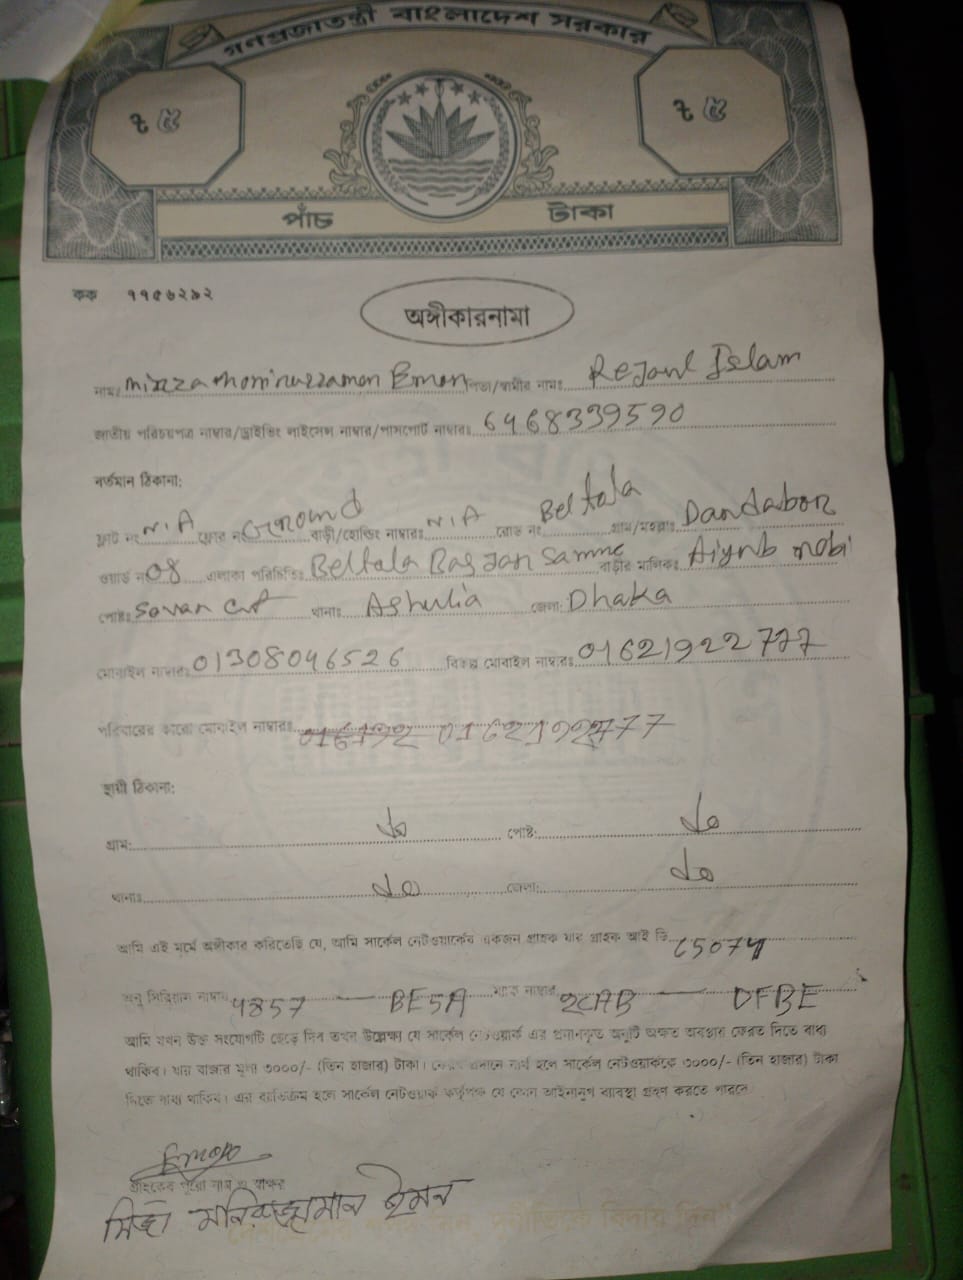 গণপ্রজাতন্ত্রী বাংলাদেশ সরকার
৳ ৫ ৳ ৫
পাঁচ টাকা
কক ৭৭৫৬২৯২
অঙ্গীকারনামা
নামঃ Mirza Moniruzzaman Emon পিতা/স্বামীর নামঃ Rejaul Islam
জাতীয় পরিচয়পত্র নাম্বার/ড্রাইভিং লাইসেন্স নাম্বার/পাসপোর্ট নাম্বারঃ 6468339590
বর্তমান ঠিকানা:
ফ্লাট নং N.A ফ্লোর নং Ground বাড়ী/হোল্ডিং নাম্বারঃ N.A রোড নং Beltola গ্রাম/মহল্লাঃ Dandabor
ওয়ার্ড নং 08 এলাকা পরিচিতিঃ Beltala Bas Jan Samne বাড়ীর মালিকঃ Aiynb nobi
পোষ্টঃ Savar থানাঃ Ashulia জেলা: Dhaka
মোবাইল নাম্বারঃ 01308046526 বিকল্প মোবাইল নাম্বারঃ 01621922777
পরিবারের কারো মোবাইল নাম্বারঃ
স্থায়ী ঠিকানা:
গ্রাম: do পোষ্ট: do
থানাঃ do জেলা: do
আমি এই মর্মে অঙ্গীকার করিতেছি যে, আমি সার্কেল নেটওয়ার্কের একজন গ্রাহক যার গ্রাহক আই ডি
অনু সিরিয়াল নাম্বার 4857 — BE5A ম্যাক নাম্বার 2CAB — DFBE
আমি যখন উক্ত সংযোগটি ছেড়ে দিব তখন উল্লেক্ষ্য যে সার্কেল নেটওয়ার্ক এর প্রদানকৃত অনুটি অক্ষত অবস্থায় ফেরত দিতে বাধ্য
থাকিব। যার বাজার মূল্য ৩০০০/- (তিন হাজার) টাকা। ফেরত প্রদানে ব্যর্থ হলে সার্কেল নেটওয়ার্ককে ৩০০০/- (তিন হাজার) টাকা
দিতে বাধ্য থাকিব। এর ব্যতিক্রম হলে সার্কেল নেটওয়ার্ক কর্তৃপক্ষ যে কোন আইনানুগ ব্যবস্থা গ্রহণ করতে পারবে
Emon
গ্রাহকের পুরো নাম ও স্বাক্ষর
মির্জা মনিরুজ্জামান ইমন